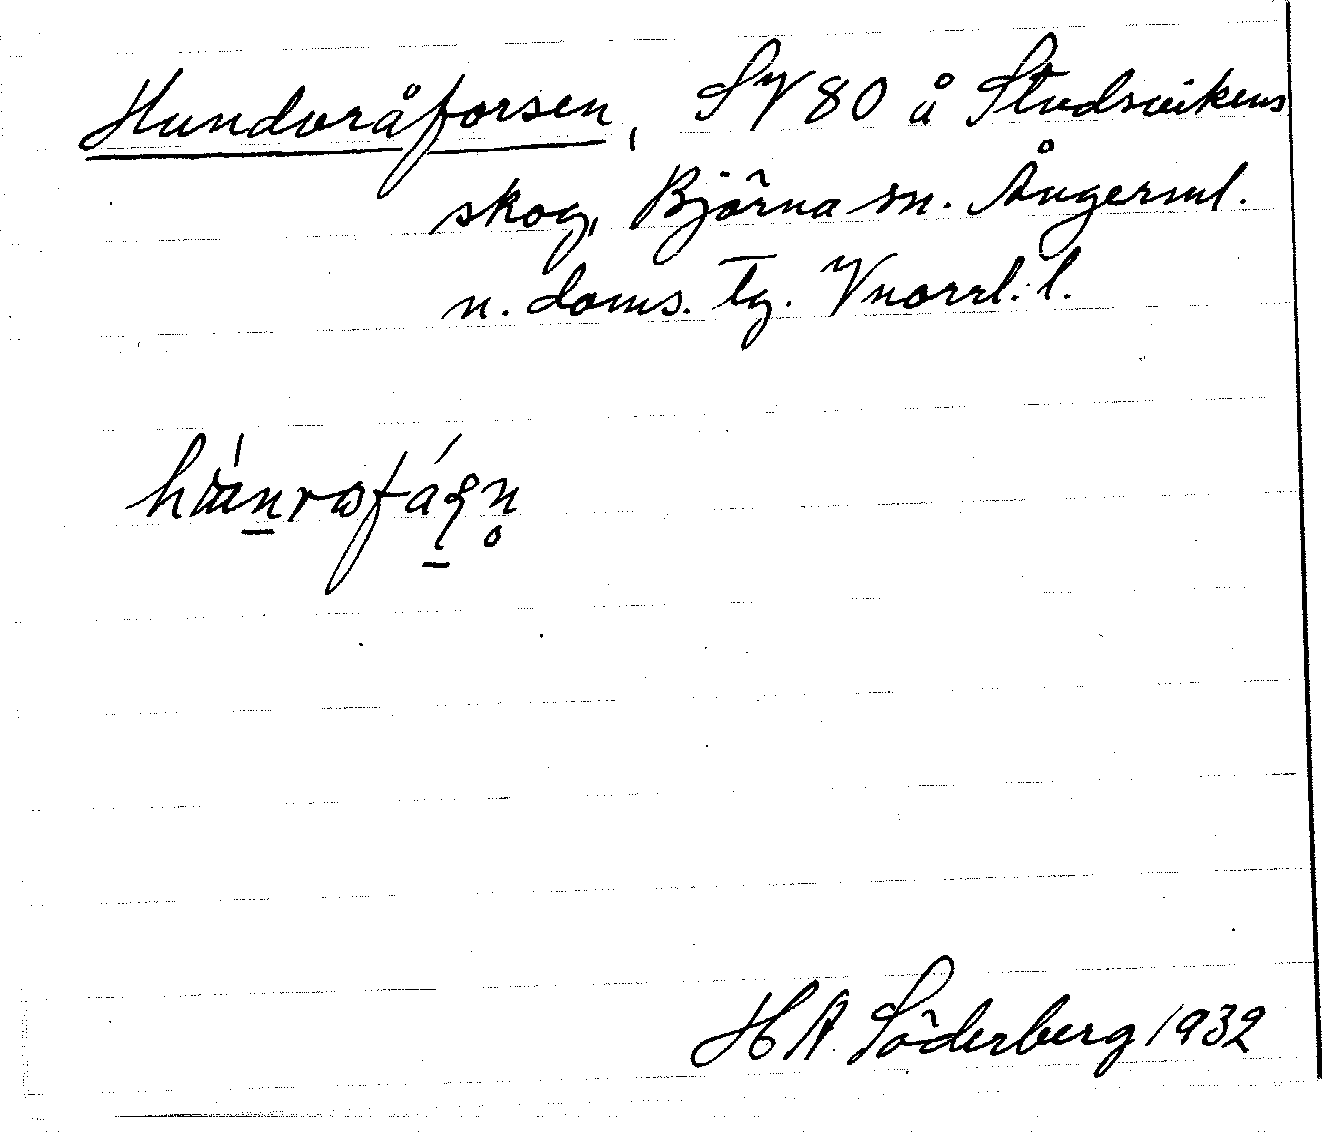 Hundvråforsen, SV 80 å Studsvikens
skog, Björna sn. Ångerml.
n. doms. tg. Vnorrl. l.
H A Söderberg 1932